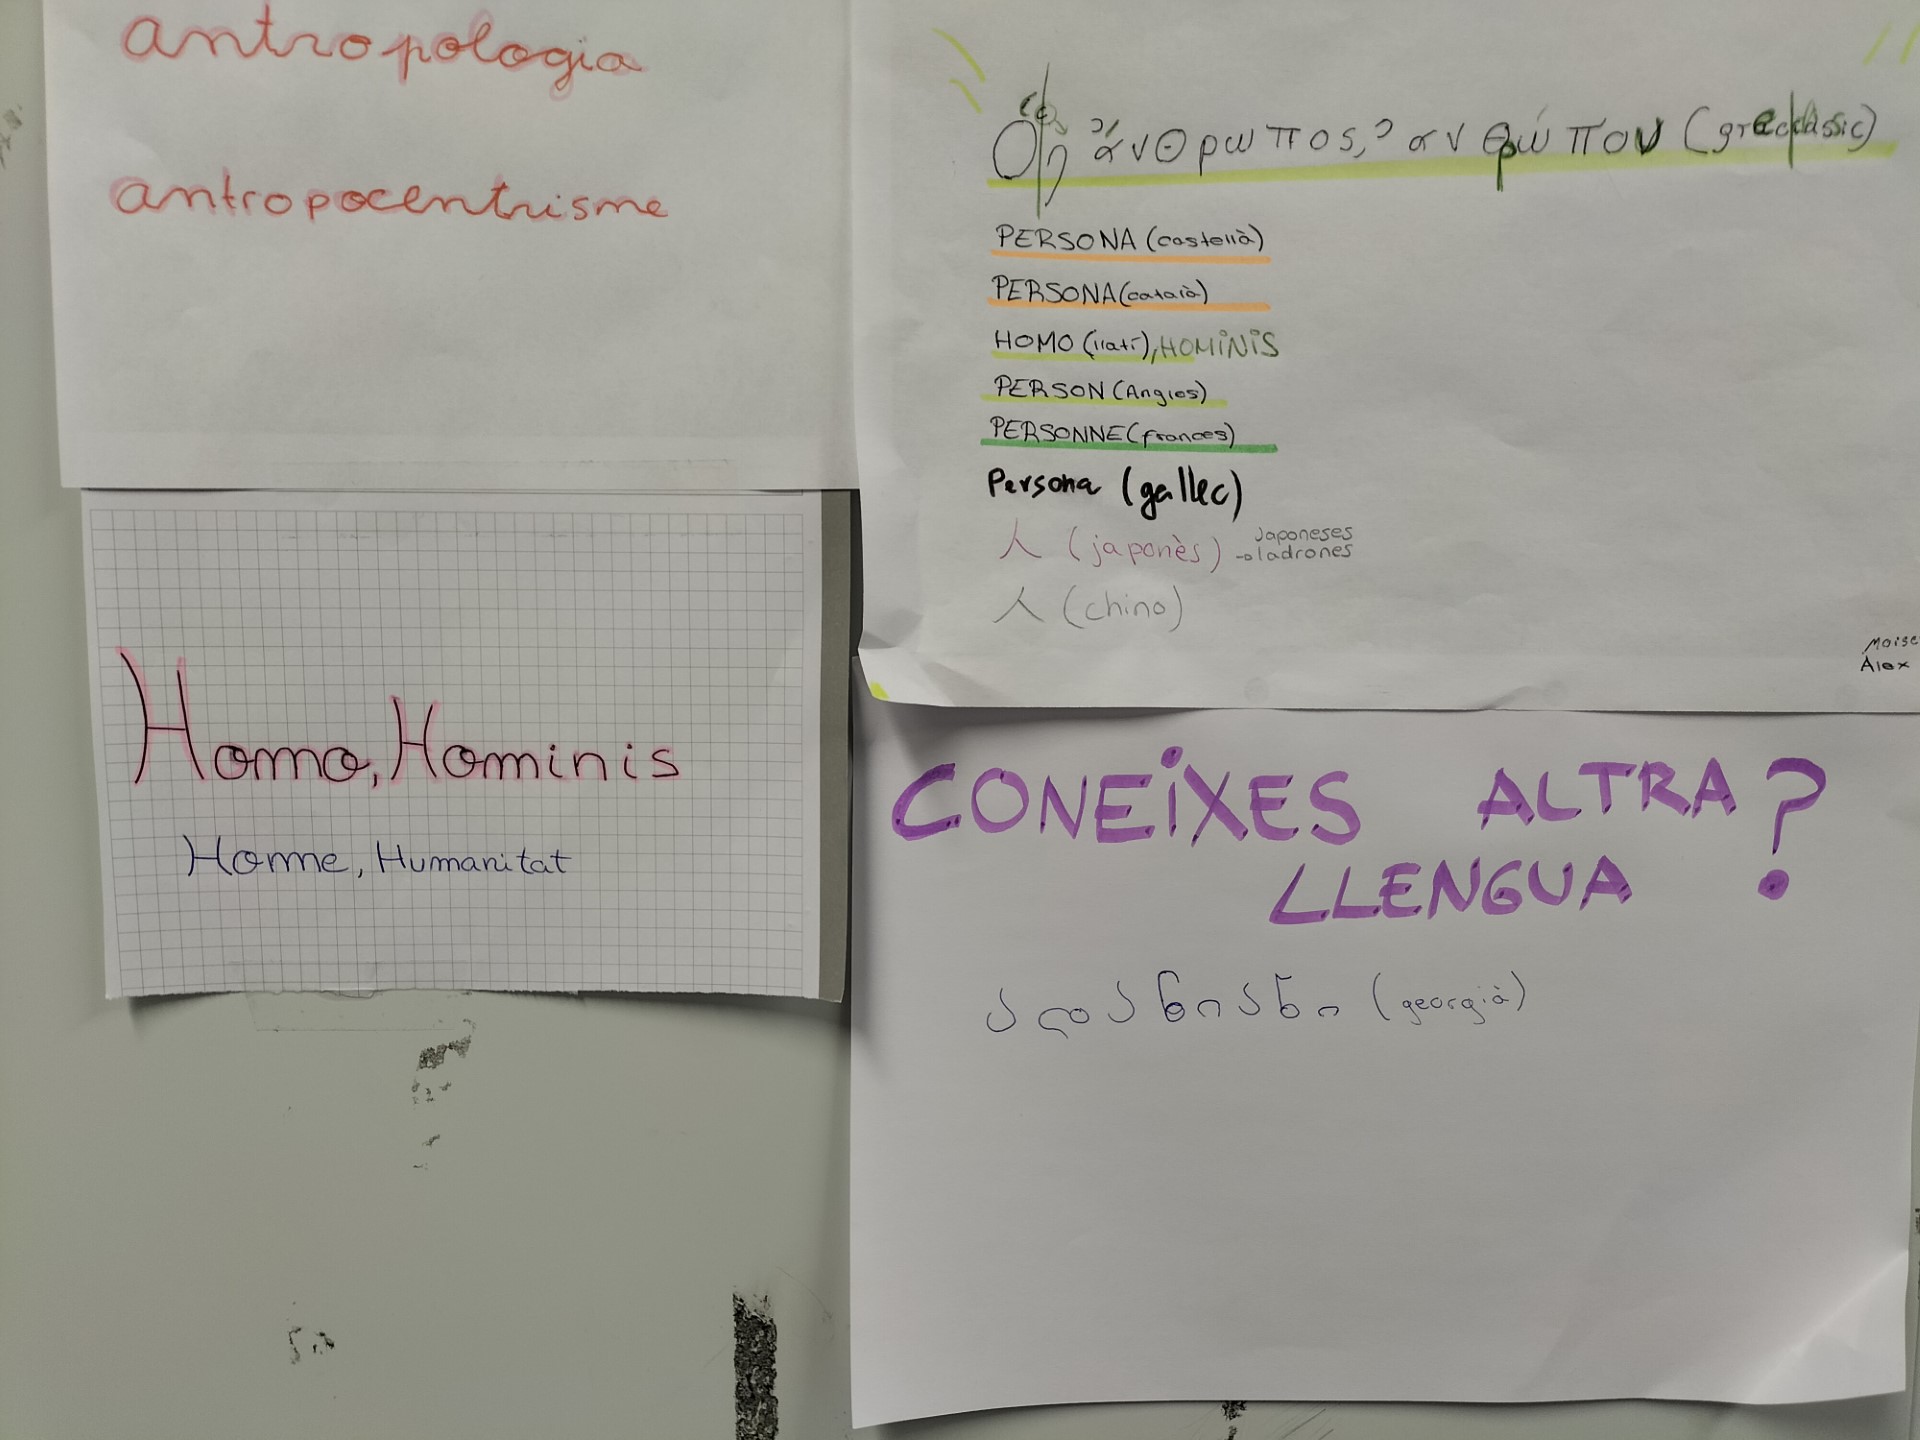 antropologia
antropocentrisme
Homo, Hominis
Home, Humanitat
ὁ/ἡ ἄνθρωπος, ἀνθρώπου (grec clàssic)
PERSONA (castellà)
PERSONA (català)
HOMO (llatí), HOMINIS
PERSON (Angles)
PERSONNE (frances)
Persona (gallec)
人 (japonès) Japoneses
→ladrones
人 (chino)
Moise
Álex
CONEIXES ALTRA
LLENGUA ?
ადამიანი (georgià)